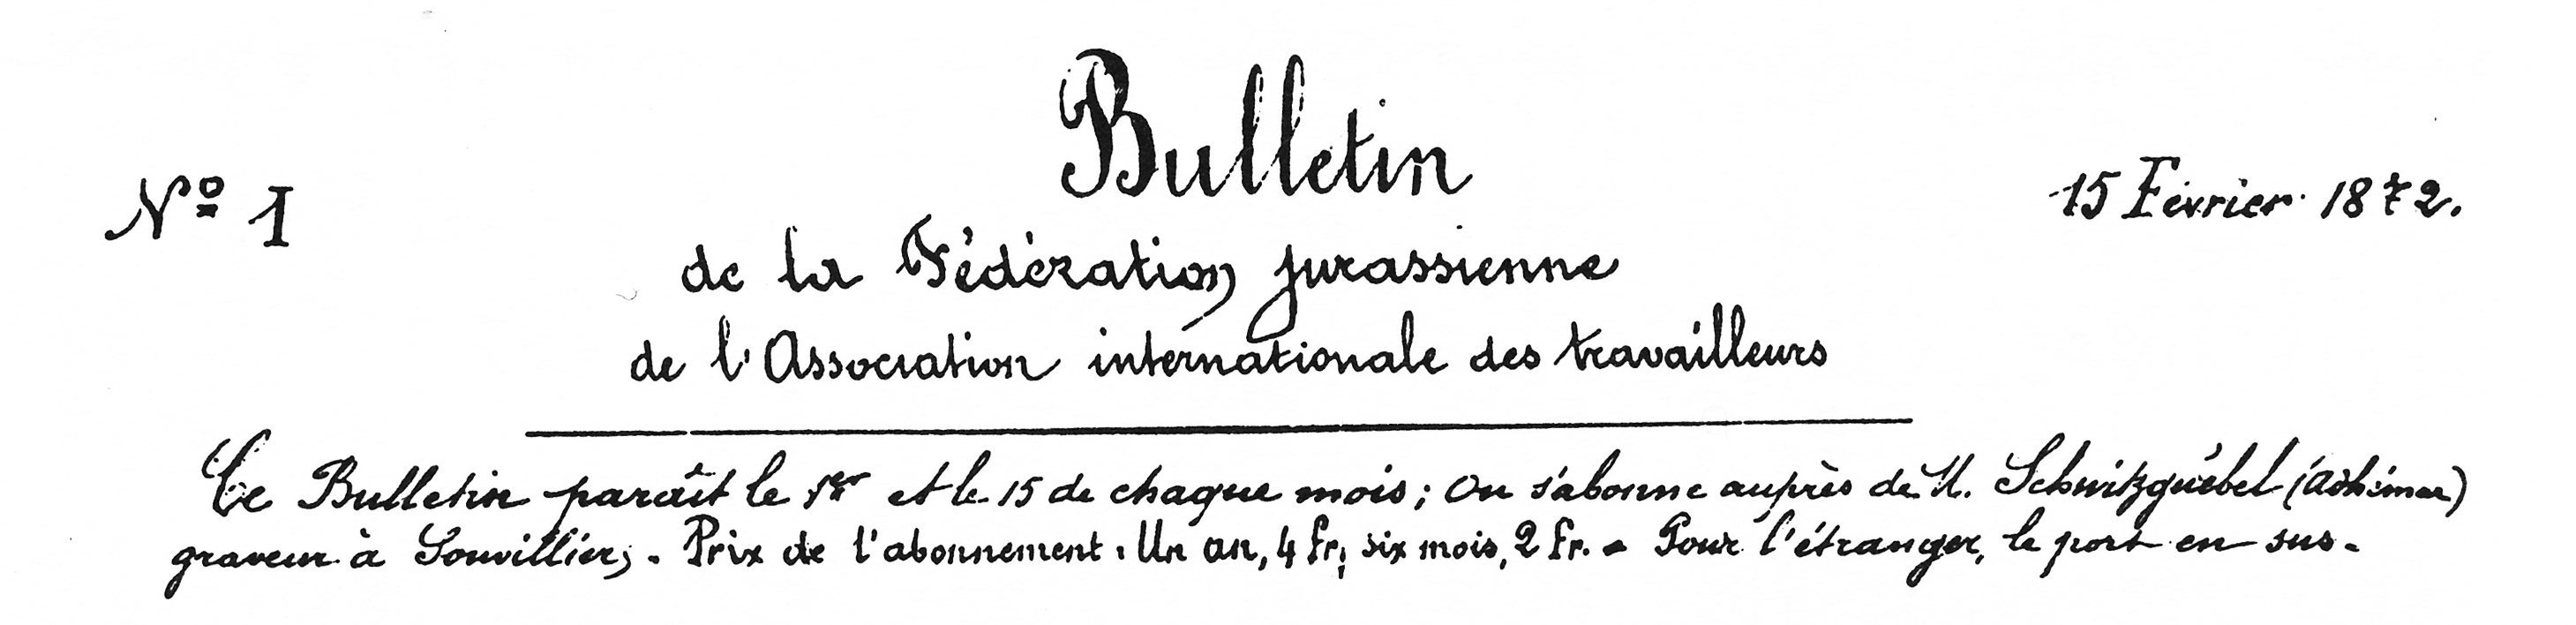 Bulletin
Nº 1
15 Février 1872.
de la Fédération jurassienne
de l'Association internationale des travailleurs
Ce Bulletin paraît le 1er et le 15 de chaque mois; On s'abonne auprès de M. Schwitzguébel (Adhémar)
graveur à Sonvillier, . Prix de l'abonnement . Un an, 4 fr; six mois, 2 fr. - Pour l'étranger, le port en sus -